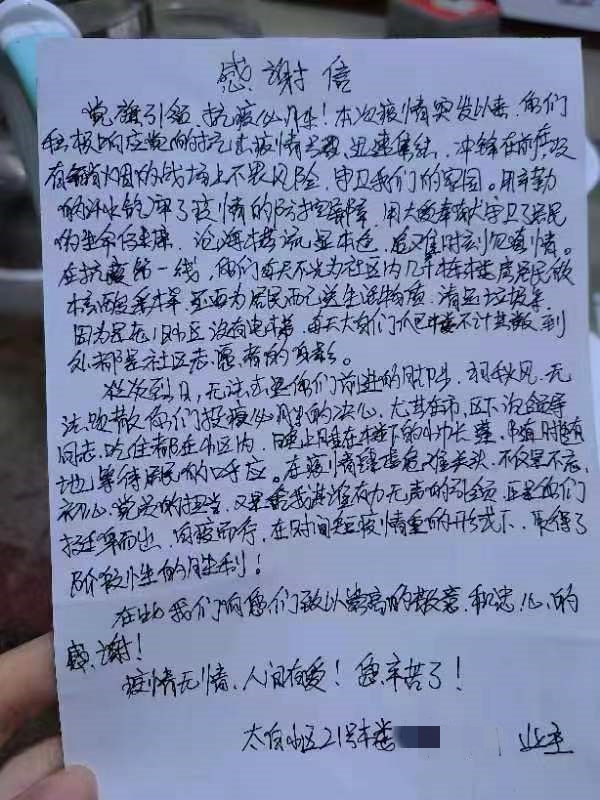 感谢信
党旗引领 抗疫必胜！本次疫情突发以来，你们
积极响应党的抗击疫情号召，迅速集结，冲锋在前线，没
有硝烟的战场上不畏风险，守卫我们的家园。用辛勤
的汗水筑牢了疫情的防控屏障，用大爱奉献守卫了居民
的生命健康，沧海横流显本色，危难时刻见真情。
在抗疫第一线，你们每天不光为社区内几十栋楼居民做
核酸采样，还要为居民配送生活物资，清运垃圾等
因为是老旧小区没有电梯，每天大白们爬楼不计其数，到
处都是社区志愿者的身影。
炎炎烈日，无法击退你们前进的脚步，习习秋风，无
法吹散你们投疫必胜的决心，尤其在市、区下沉领导
同志，吃住都在小区内，晚上睡在楼下的帐篷，随时随
地等待居民的呼应。在疫情肆虐危难关头，不仅是不忘
初心，党员的担当，又是给我们强有力无声的引领，正是你们
挺身而出，向疫而行，在时间短疫情重的形式下，取得了
阶段性的胜利！
在此我们向您们致以崇高的敬意和忠心的
感谢！
疫情无情，人间有爱！您辛苦了！
太白小区21号楼 业主